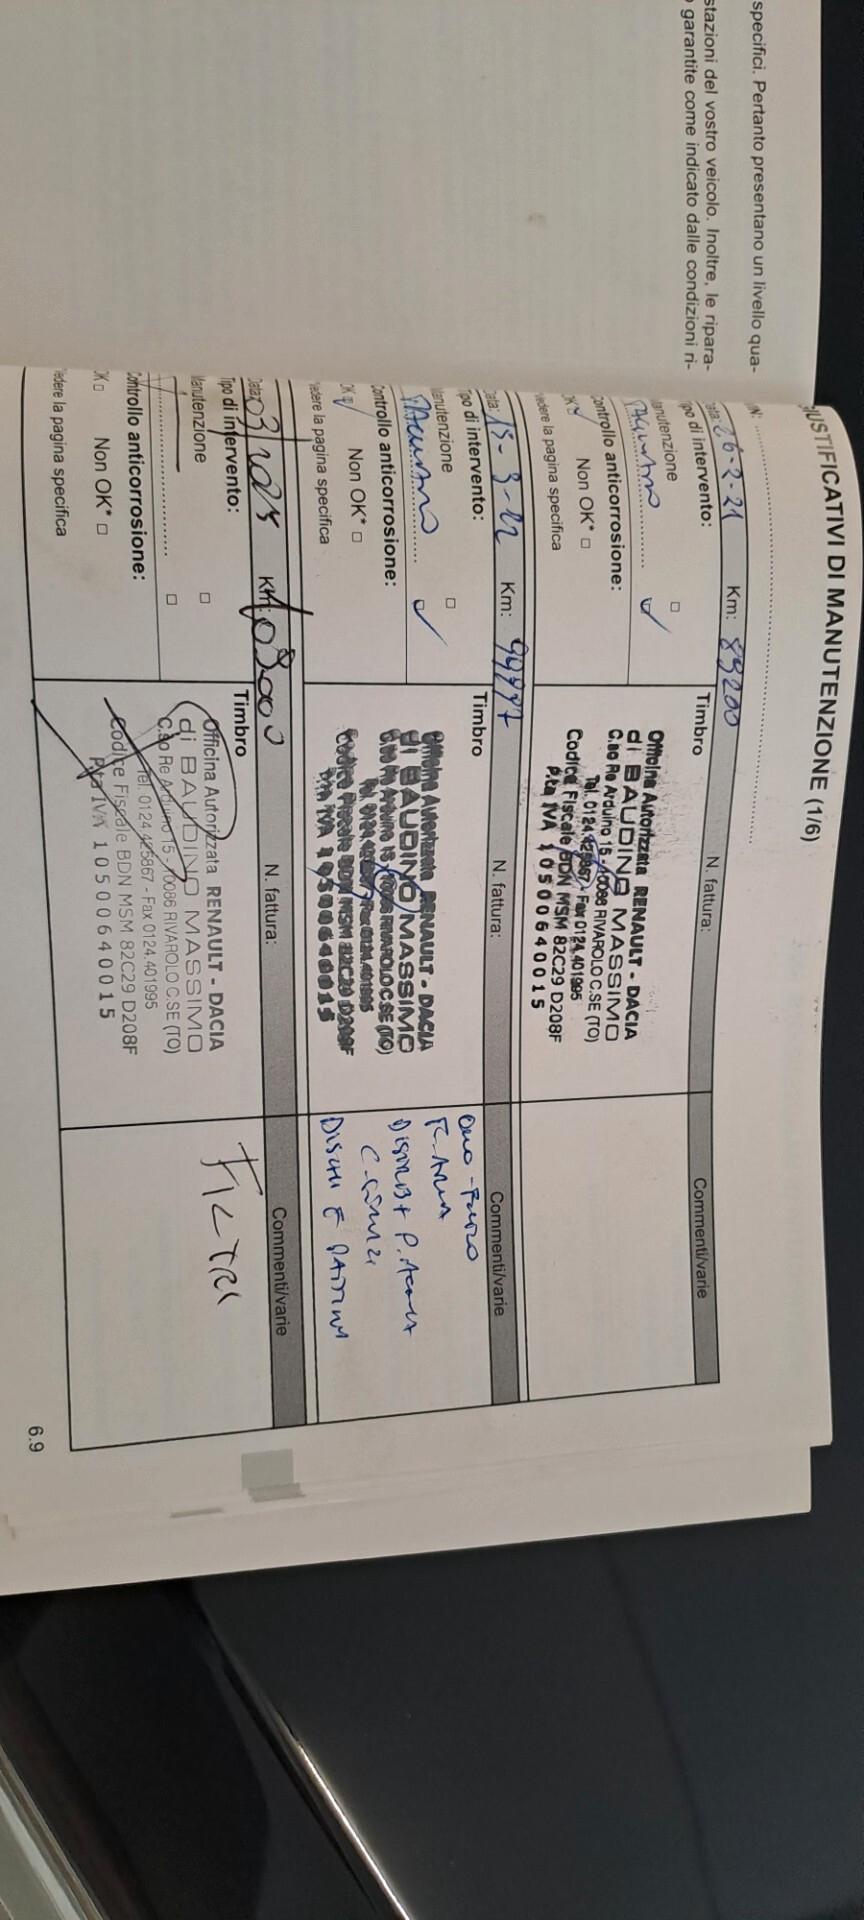 specifici. Pertanto presentano un livello qua-
stazioni del vostro veicolo. Inoltre, le ripara-
garantite come indicato dalle condizioni ri-
IUSTIFICATIVI DI MANUTENZIONE (1/6)
IN: ..........................................
ata: 26-2-21 Km: 89200 N. fattura: Commenti/varie
ipo di intervento:
anutenzione □
ontrollo anticorrosione:
OK Non OK* □
vedere la pagina specifica
Timbro
Officina Autorizzata RENAULT - DACIA
di BAUDINO MASSIMO
C.so Re Arduino 15 - 10086 RIVAROLO C.SE (TO)
Tel. 0124.425867 - Fax 0124.401995
Codice Fiscale BDN MSM 82C29 D208F
P.ta IVA 10500640015
Data: 15-3-22 Km: N. fattura: Commenti/varie
ipo di intervento:
Manutenzione □
Controllo anticorrosione:
OK Non OK* □
Vedere la pagina specifica
Timbro
Officina Autorizzata RENAULT - DACIA
di BAUDINO MASSIMO
C.so Re Arduino 15 - 10086 RIVAROLO C.SE (TO)
Tel. 0124.425867 - Fax 0124.401995
Codice Fiscale BDN MSM 82C29 D208F
P.ta IVA 10500640015
F. ARIA
DISCHI E PATTINI
Data: Km: N. fattura: Commenti/varie
Tipo di intervento:
Manutenzione □
.......................... □
Controllo anticorrosione:
OK □ Non OK* □
Vedere la pagina specifica
Timbro
Officina Autorizzata RENAULT - DACIA
di BAUDINO MASSIMO
C.so Re Arduino 15 - 10086 RIVAROLO C.SE (TO)
Tel. 0124.425867 - Fax 0124.401995
Codice Fiscale BDN MSM 82C29 D208F
P.ta IVA 10500640015
FILTRI
6.9